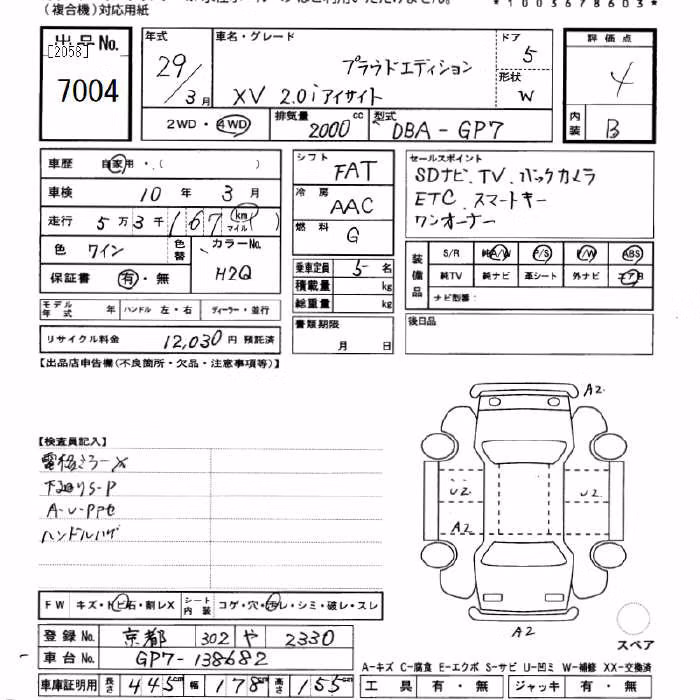 (複合機)対応用紙
*1003678603*
出品No.
[2058]
7004
年式
29/3月
車名・グレード
プラウドエディション
XV 2.0iアイサイト
ドア
5
形状
W
2WD・4WD
排気量
2000cc
型式
DBA-GP7
評価点
4
内装
B
車歴 自家用・( )
車検 10年 3月
走行 5万3千167 km マイル( )
色 ワイン
色替
カラーNo.
H2Q
保証書 有・無
モデル年式 年 ハンドル 左・右 ディーラー・並行
リサイクル料金 12,030円 預託済
シフト FAT
冷房 AAC
燃料 G
乗車定員 5名
積載量 kg
総重量 kg
書類期限
月 日
セールスポイント
SDナビ、TV、バックカメラ
ETC、スマートキー
ワンオーナー
装備品
S/R 純A/W P/S P/W ABS
純TV 純ナビ 革シート 外ナビ エアB
ナビ型番:
後日品
【出品店申告欄(不良箇所・欠品・注意事項等)】
【検査員記入】
電格ミラーX
下廻りS-P
ハンドルハゲ
A2
U2 U2
A2
A2
スペア
FW キズ・トビ石・割レX
シート内装 コゲ・穴・汚レ・シミ・破レ・スレ
登録No. 京都 302 や 2330
車台No. GP7-138682
車庫証明用 長さ 445cm 幅 178cm 高さ 155cm
A-キズ C-腐食 E-エクボ S-サビ U-凹ミ W-補修 XX-交換済
工具 有・無 ジャッキ 有・無